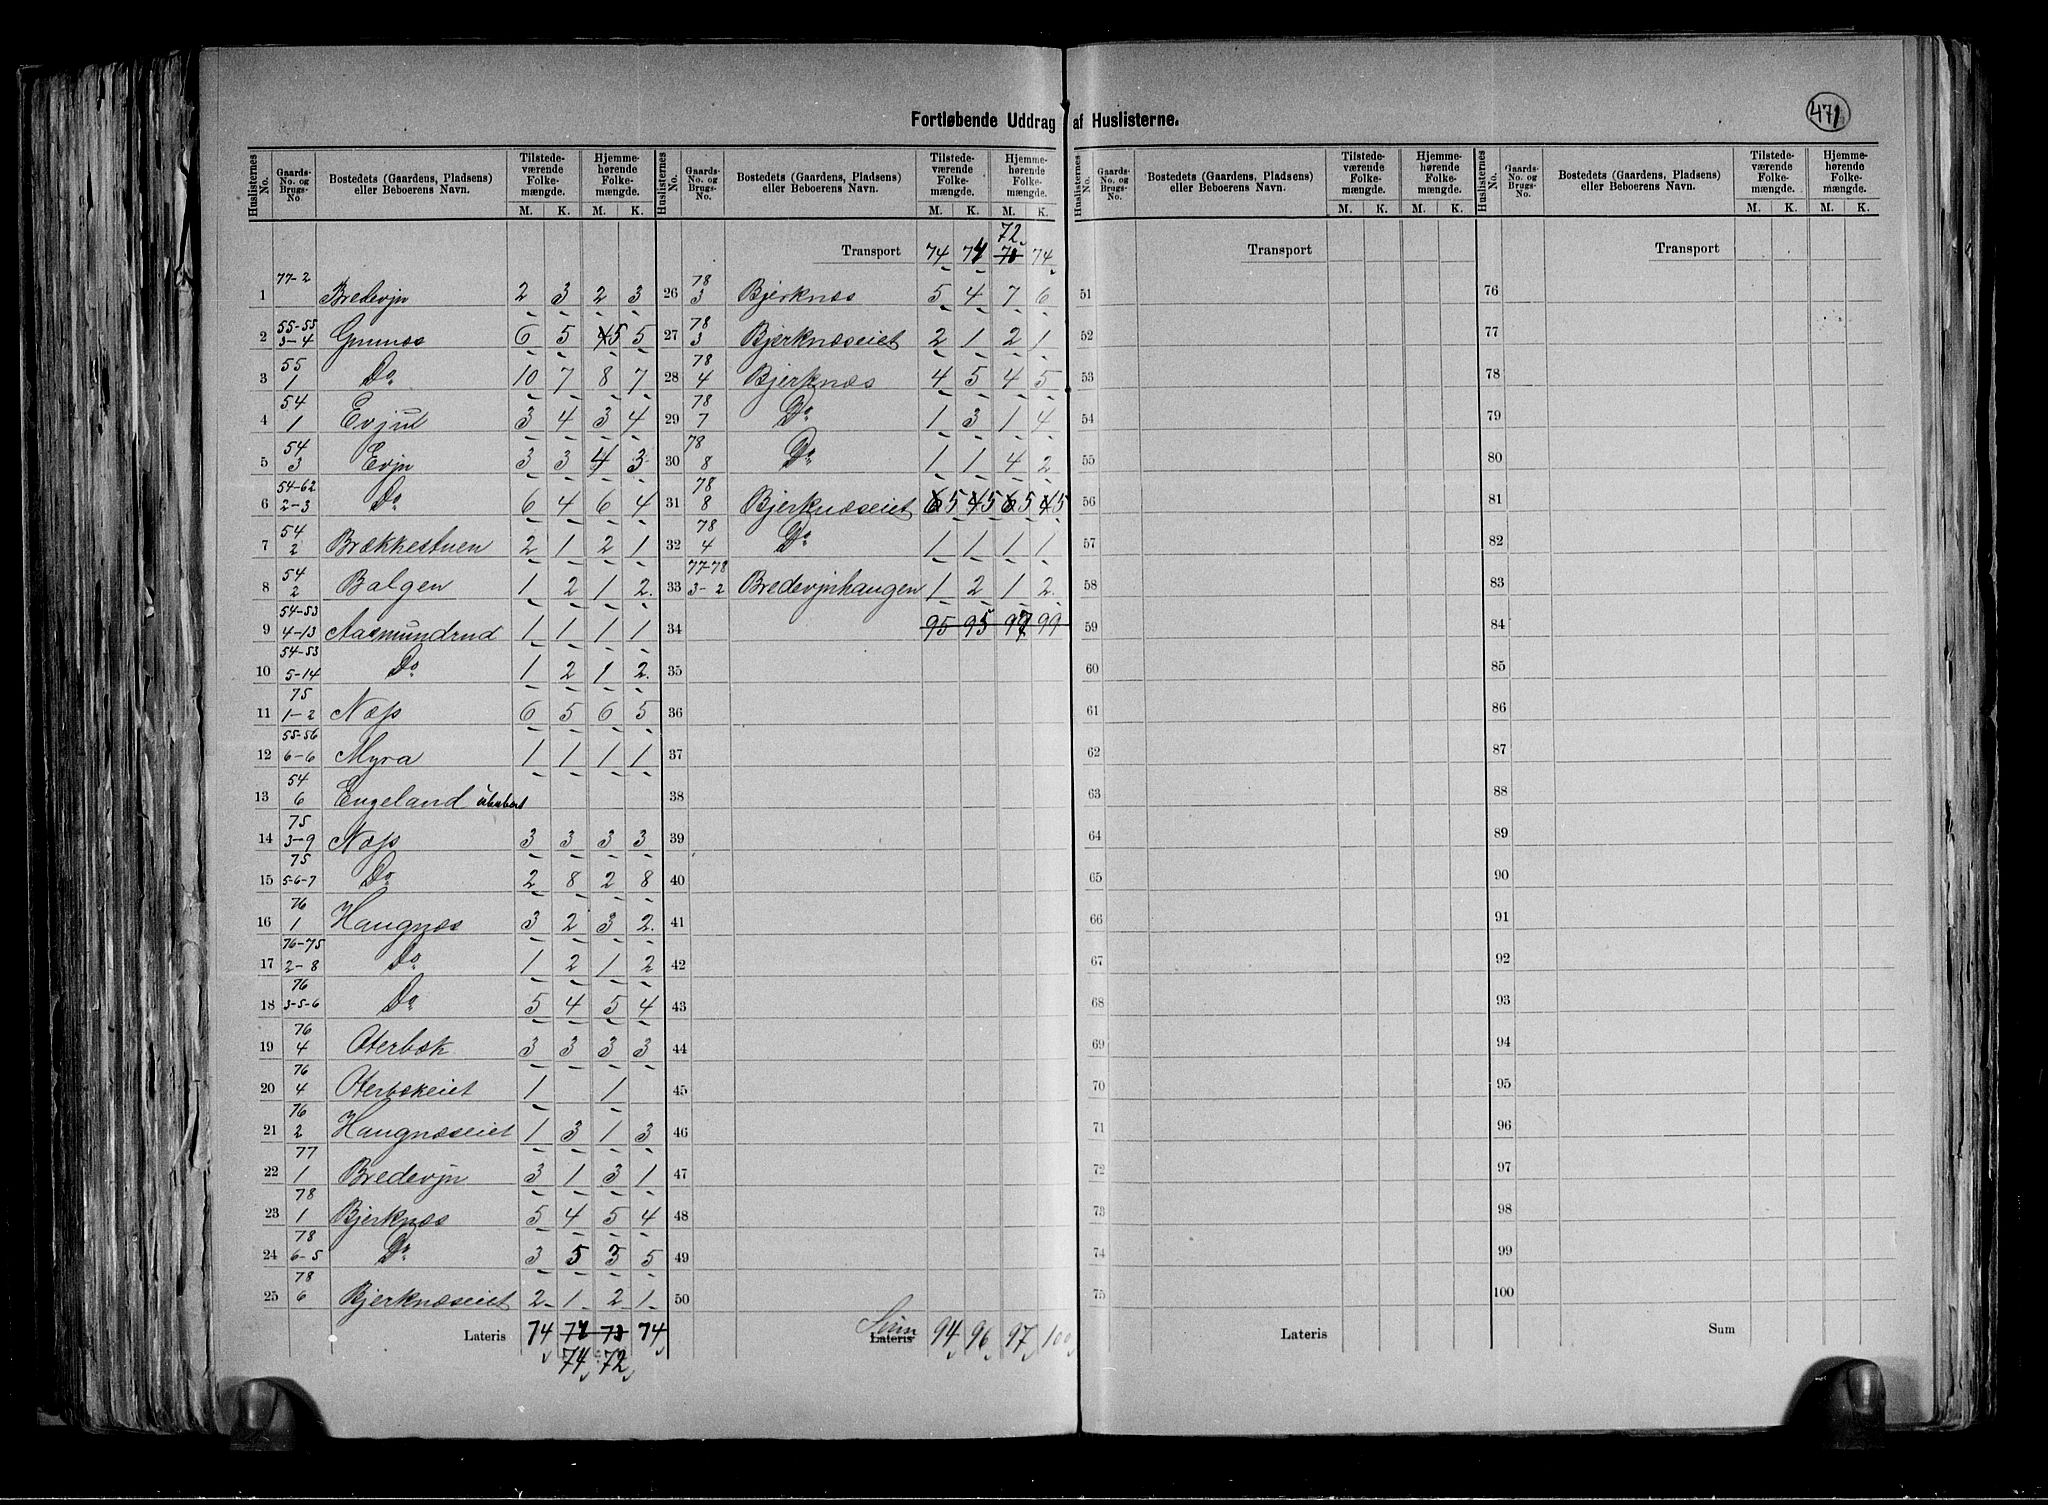 471
Fortløbende Uddrag af Huslisterne.
Huslisternes No. Gaards-No. og Brugs-No Bostedets (Gaardens, Pladsens) eller Beboerens Navn. Tilstedeværende Folkemængde. M. K. Hjemmehørende Folkemængde. M. K.
1 77-2 Bredevjn 2 3 2 3
2 55-55 3-4 Grunnæs 6 5 4 5 5
3 55 1 Do 10 7 8 7
4 54 1 Evjul 3 4 3 4
5 54 3 Evjn 3 3 4 3
6 54-62 2-3 Do 6 4 6 4
7 54 2 Brækkestuen 2 1 2 1
8 54 2 Balgen 1 2 1 2
9 54-53 4-13 Aasmundrud 1 1 1 1
10 54-53 5-14 Do 1 2 1 2
11 75 1-2 Næss 6 5 6 5
12 55-56 6-6 Myra 1 1 1 1
13 54 6 Engeland ubeboet
14 75 3-9 Næss 3 3 3 3
15 75 5-6-7 Do 2 8 2 8
16 76 1 Haugnæs 3 2 3 2
17 76-75 2-8 Do 1 2 1 2
18 76 3-5-6 Do 5 4 5 4
19 76 4 Oterbæk 3 3 3 3
20 76 4 Oterbækeiet 1 1
21 76 2 Haugnæseiet 1 3 1 3
22 77 1 Bredevjn 3 1 3 1
23 78 1 Bjerknæs 5 4 5 4
24 78 6-5 Do 3 5 3 5
25 78 6 Bjerknæseiet 2 1 2 1
Lateris 74 74
74 72
Huslisternes No. Gaards-No. og Brugs-No. Bostedets (Gaardens, Pladsens) eller Beboerens Navn. Tilstedeværende Folkemængde. M. K. Hjemmehørende Folkemængde. M. K.
72
Transport 74 74 74
26 78 3 Bjerknæs 5 4 7 6
27 78 3 Bjerknæseiet 2 1 2 1
28 78 4 Bjerknæs 4 5 4 5
29 78 7 Do 1 3 1 4
30 78 8 Do 1 1 4 2
31 78 8 Bjerknæseiet 6 5 4 5 6 5 4 5
32 78 4 Do 1 1 1 1
33 77-78 3-2 Bredevjnhaugen 1 2 1 2
34 95 95 97 99
35
36
37
38
39
40
41
42
43
44
45
46
47
48
49
50
Lateris Sum 94 96 97 100
Huslisternes No. Gaards-No. og Brugs-No. Bostedets (Gaardens, Pladsens) eller Beboerens Navn. Tilstedeværende Folkemængde. M. K. Hjemmehørende Folkemængde. M. K.
Transport
51
52
53
54
55
56
57
58
59
60
61
62
63
64
65
66
67
68
69
70
71
72
73
74
75
Lateris
Huslisternes No. Gaards-No. og Brugs-No. Bostedets (Gaardens, Pladsens) eller Beboerens Navn. Tilstedeværende Folkemængde. M. K. Hjemmehørende Folkemængde. M. K.
Transport
76
77
78
79
80
81
82
83
84
85
86
87
88
89
90
91
92
93
94
95
96
97
98
99
100
Sum